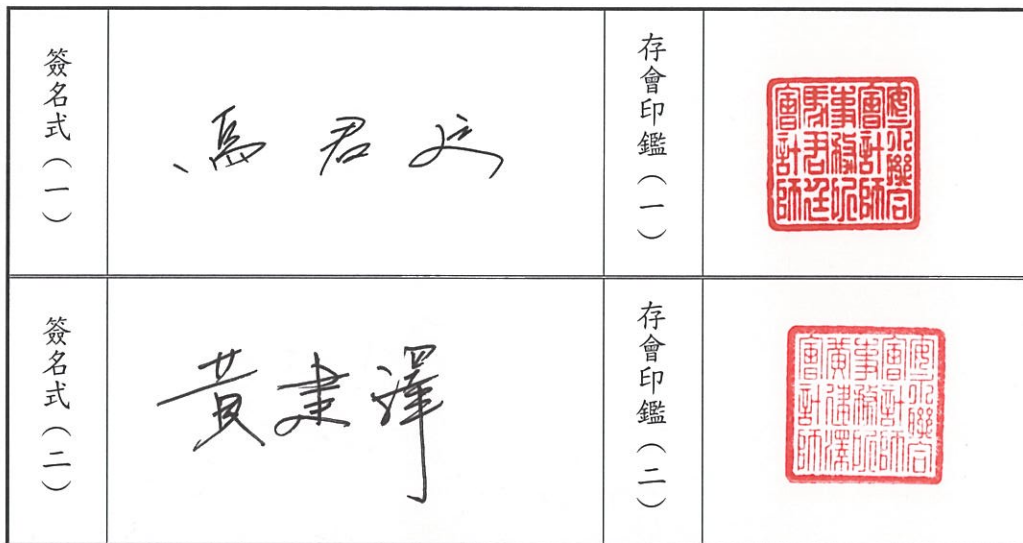 簽名式(一)
馬君廷
存會印鑑(一)
安永聯合
會計師
事務所
馬君廷
會計師
簽名式(二)
黃建澤
存會印鑑(二)
安永聯合
會計師
事務所
黃建澤
會計師